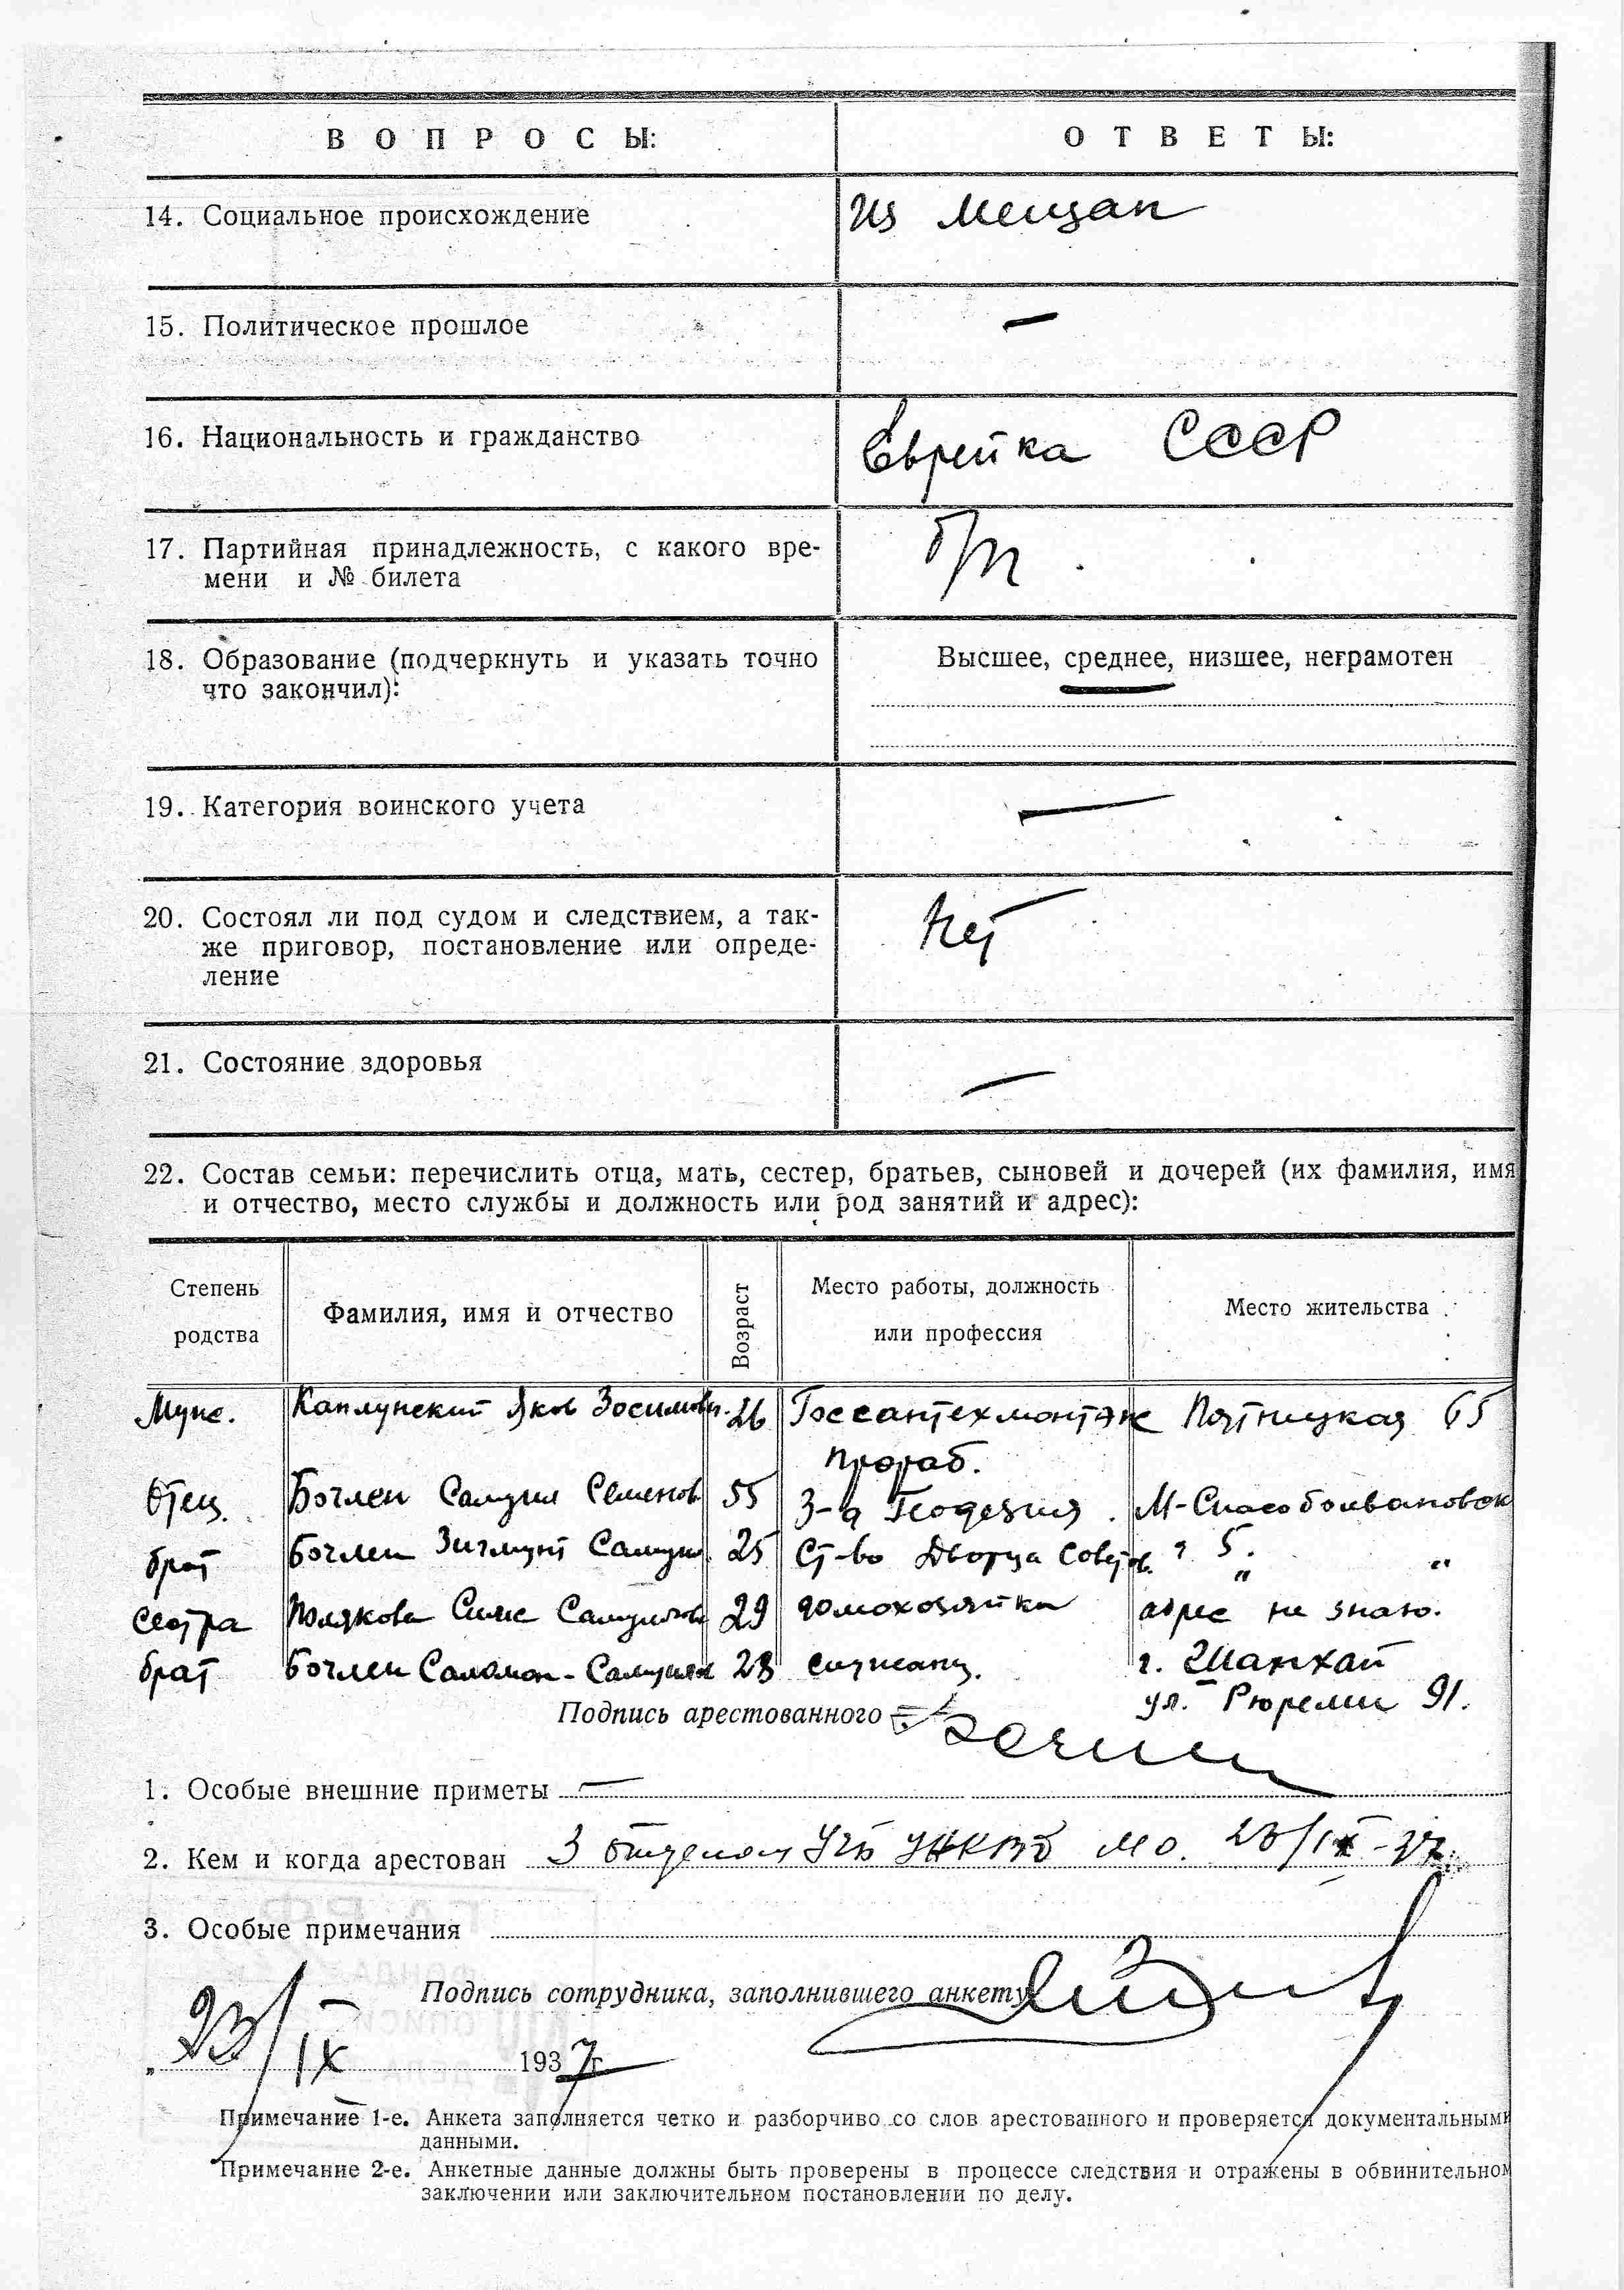 ВОПРОСЫ: ОТВЕТЫ:
14. Социальное происхождение Из мещан
15. Политическое прошлое —
16. Национальность и гражданство Еврейка СССР
17. Партийная принадлежность, с какого вре-
мени и № билета
б/п
18. Образование (подчеркнуть и указать точно
что закончил):
Высшее, среднее, низшее, неграмотен
19. Категория воинского учета —
20. Состоял ли под судом и следствием, а так-
же приговор, постановление или опреде-
ление
Нет
21. Состояние здоровья —
22. Состав семьи: перечислить отца, мать, сестер, братьев, сыновей и дочерей (их фамилия, имя
и отчество, место службы и должность или род занятий и адрес):
Степень
родства
Фамилия, имя и отчество
Возраст
Место работы, должность
или профессия
Место жительства
Муж. Каплунский Яков Зосимов. 26 Госсантехмонтаж Пятницкая 65
прораб.
Отец. Бочлен Самуил Семенов 55 Геодезия М-Спасоболвановск
брат Бочлен Зигмунт Самуил. 25 Ст-во Дворца Советов. 5. "
сестра Полякова Самуилов 29 домохозяйка адрес не знаю.
брат Бочлен Саламон-Самуил 23 служащ. г. Шанхай
ул. 91.
Подпись арестованного
1. Особые внешние приметы —
2. Кем и когда арестован 3 отделом УГБ УНКВД МО. 23/IX-37
3. Особые примечания
Подпись сотрудника, заполнившего анкету
„ 23/IX 1937г
Примечание 1-е. Анкета заполняется четко и разборчиво со слов арестованного и проверяется документальными
данными.
Примечание 2-е. Анкетные данные должны быть проверены в процессе следствия и отражены в обвинительном
заключении или заключительном постановлении по делу.